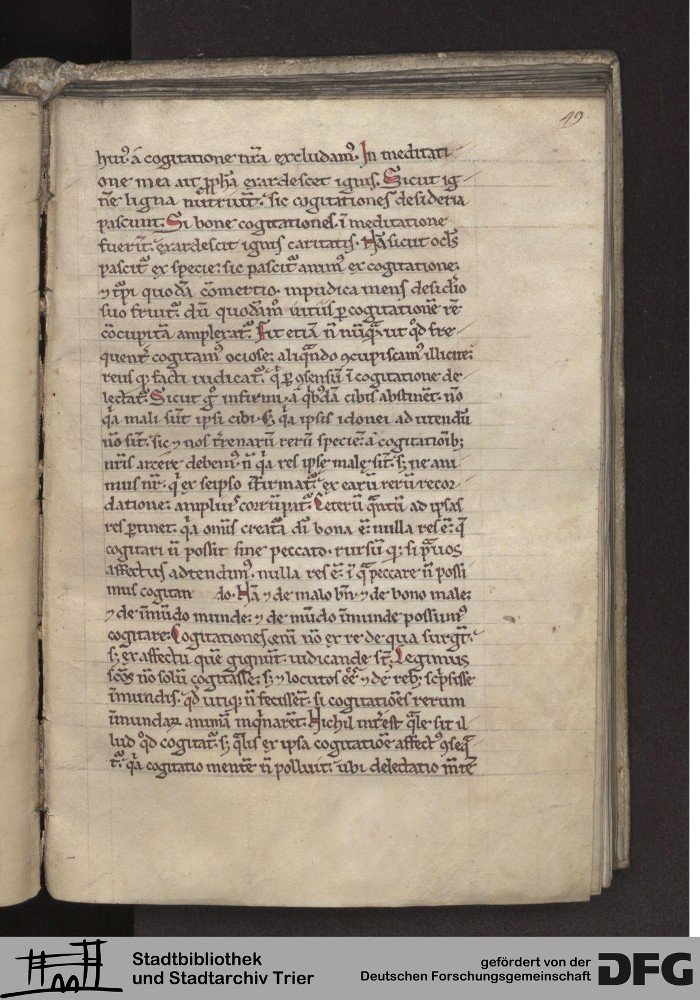 49.
huiꝰ a cogitatione nr̄a excludamꝰ. In meditati-
one mea ait ꝓph̄a exardescet ignis. Sicut ig-
ne ligna nutriunt᷑. sic cogitationes desideria
pascunt. Si bone cogitationes ī meditatione
fuerīt. exardescit ignis caritatis. Nā sicut ocl̄s
pascit᷑ ex specie: sic pascit᷑ animꝰ ex cogitatione:
⁊ t̄pi quodā cōmertio. inpudica mens desidio
suo fruit᷑. dū quodāmͦ uirtus ꝑ cogitationē rē
cōcupitā amplexat᷑. Fit etiā ñ nūqͣ. ut qd̄ fre-
quent̄ cogitamꝰ ociose: aliqn̄do ꝯcupiscamꝰ illicite:
reus qꝫ facti iudicat᷑. qi ꝑ ꝯsensū ī cogitatione de-
lectat᷑. Sicut gͦ infirmi. a qͥbꝰdā cibis abstinēt. nō
qͥa mali sūt ipsi cibi. sꝫ qͥa ipsis idonei ad utendū
nō sūt. sic ⁊ nos t̄renarū rerū specie: a cogitationibꝫ
nr̄is arcere debemꝰ. ñ qͥa res ipse male sīt. sꝫ ne ani
mus nr̄. qͥ ex seipso īfirmat᷑. ex earū rerū recor
datione: ampliꝰ corrūpat᷑. Ceterū qͣntū ad ipsas
res ꝑtinet. qͥa om̄is creat᷑a dī bona ē: nulla res ē: q̄
cogitari ñ possit sine peccato. rursū qꝫ: si prauos
affectus adtendimꝰ. nulla res ē: ī qͣ peccare ñ possi
mus cogitan do. Nā ⁊ de malo bn̄. ⁊ de bono male:
⁊ de īmūdo munde: ⁊ de mūdo īmunde possumꝰ
cogitare: Cogitationes enī nō ex re de qua surgūt.
sꝫ ex affectu quē gignūt. iudicande st̄. Legimus
sc̄os nō solū cogitasse: sꝫ ⁊ locutos eē ⁊ de rebꝫ sc̄psisse
īmundis. qd̄ utiqꝫ ñ fecissēt. si cogitatiōes rerum
īmundaꝝ animā inqͥnarēt. Nichil int̄est qͣle sit il
lud qd̄ cogitat᷑. sꝫ qͣlis ex ipsa cogitatiōe affectꝰ ꝯseqͣ
t᷑. qͥa cogitatio mentē ñ polluit. ubi delectatio m̄tē
Stadtbibliothek
und Stadtarchiv Trier
gefördert von der
Deutschen Forschungsgemeinschaft DFG